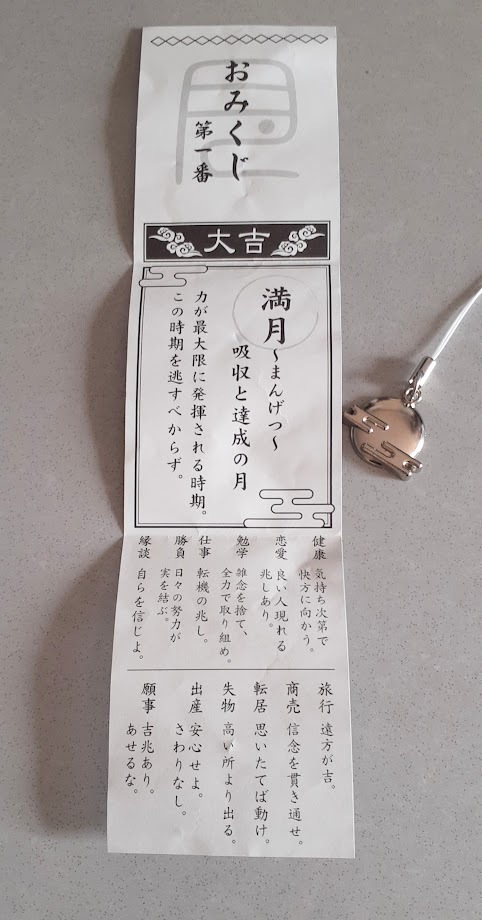 おみくじ
第一番
大吉
満月〜まんげつ〜
吸収と達成の月
力が最大限に発揮される時期。
この時期を逃すべからず。
健康 気持ち次第で
快方に向かう。
恋愛 良い人現れる
兆しあり。
勉学 雑念を捨て、
全力で取り組め。
仕事 転機の兆し。
勝負 日々の努力が
実を結ぶ。
縁談 自らを信じよ。
旅行 遠方が吉。
商売 信念を貫き通せ。
転居 思いたてば動け。
失物 高い所より出る。
出産 安心せよ。
さわりなし。
願事 吉兆あり。
あせるな。